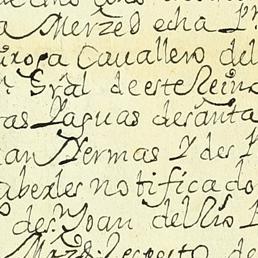 a Merzed echa Pr
uropa Cavallero del
n Gral de este Reino
ras Yaguas de santa
an Hermas Y des P
aberles notificado
Po de sn Joan del Rio P
Mrzd: Respecto de